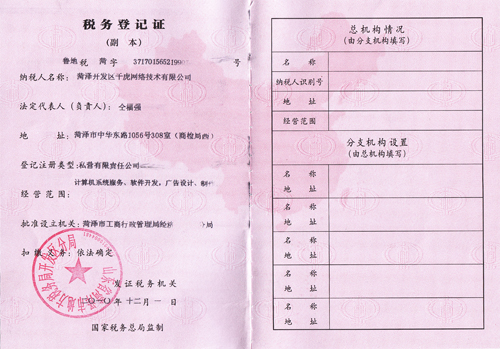 税务登记证
(副 本)
鲁地 税 菏 字 371701565219 号
纳税人名称: 菏泽开发区千虎网络技术有限公司
法定代表人(负责人): 仝福强
地 址: 菏泽市中华东路1056号308室(商检局西)
登记注册类型: 私营有限责任公司
经营范围: 计算机系统服务、软件开发, 广告设计、制作
批准设立机关: 菏泽市工商行政管理局经 分局
扣缴义务: 依法确定
发证税务机关
二〇一〇年 十二月 一 日
国家税务总局监制
总机构情况
(由分支机构填写)
名 称
纳税人识别号
地 址
经营范围
分支机构设置
(由总机构填写)
名 称
地 址
名 称
地 址
名 称
地 址
名 称
地 址
名 称
地 址